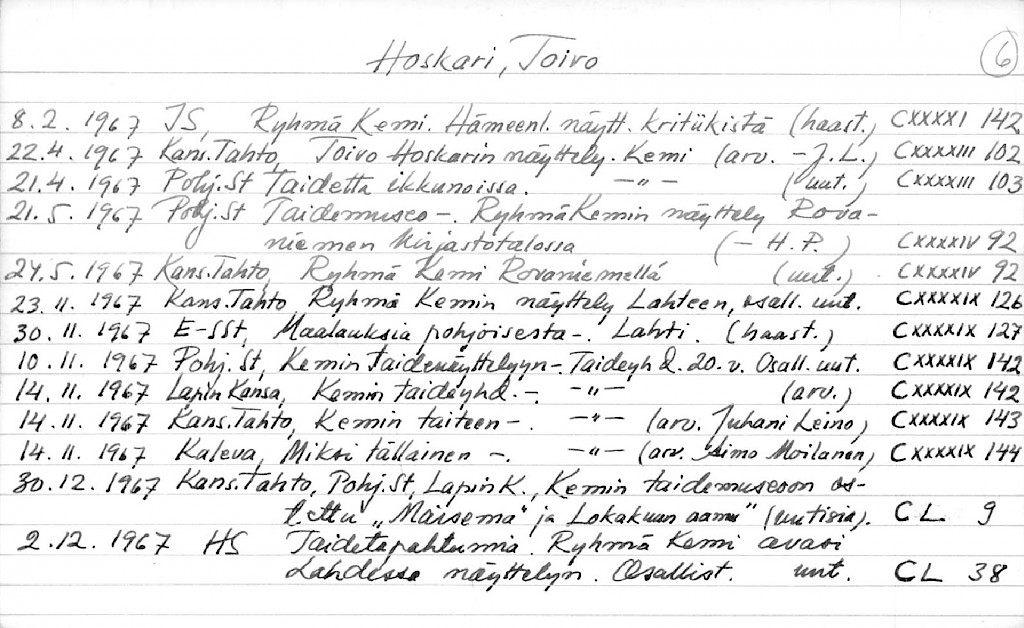 Hoskari, Toivo 6
8.2. 1967 JS, Ryhmä Kemi. Hämeenl. näytt. kritiikistä (haast.) CXXXXI 142
22.4. 1967 Kans.Tahto, Toivo Hoskarin näyttely. Kemi (arv. - J.L.) CXXXXIII 102
21.4. 1967 Pohj.St Taidetta ikkunoissa. —"— (uut.) CXXXXIII 103
21.5. 1967 Pohj.St Taidemuseo -. Ryhmä Kemin näyttely Rova-
niemen kirjastotalossa (- H.P.) CXXXXIV 92
24.5. 1967 Kans.Tahto, Ryhmä Kemi Rovaniemellä (uut.). CXXXXIV 92
23.11. 1967 Kans.Tahto Ryhmä Kemin näyttely Lahteen, osall. uut. CXXXXIX 126
30.11. 1967 E-SSt, Maalauksia pohjoisesta -. Lahti. (haast.) CXXXXIX 127
10.11. 1967 Pohj.St, Kemin taidenäyttelyyn - Taideyhd. 20.v. Osall. uut. CXXXXIX 142
14.11. 1967 Lapin Kansa, Kemin taideyhd. -. —"— (arv.) CXXXXIX 142
14.11. 1967 Kans.Tahto, Kemin taiteen -. —"— (arv. Juhani Leino) CXXXXIX 143
14.11. 1967 Kaleva, Miksi tällainen -. —"— (arv. Simo Moilanen) CXXXXIX 144
30.12. 1967 Kans.Tahto, Pohj.St, Lapin K., Kemin taidemuseoon os-
tettu "Maisema" ja Lokakuun aamu" (uutisia). CL 9
2.12. 1967 HS Taidetapahtumia. Ryhmä Kemi avasi
Lahdessa näyttelyn. Osallist. uut. CL 38